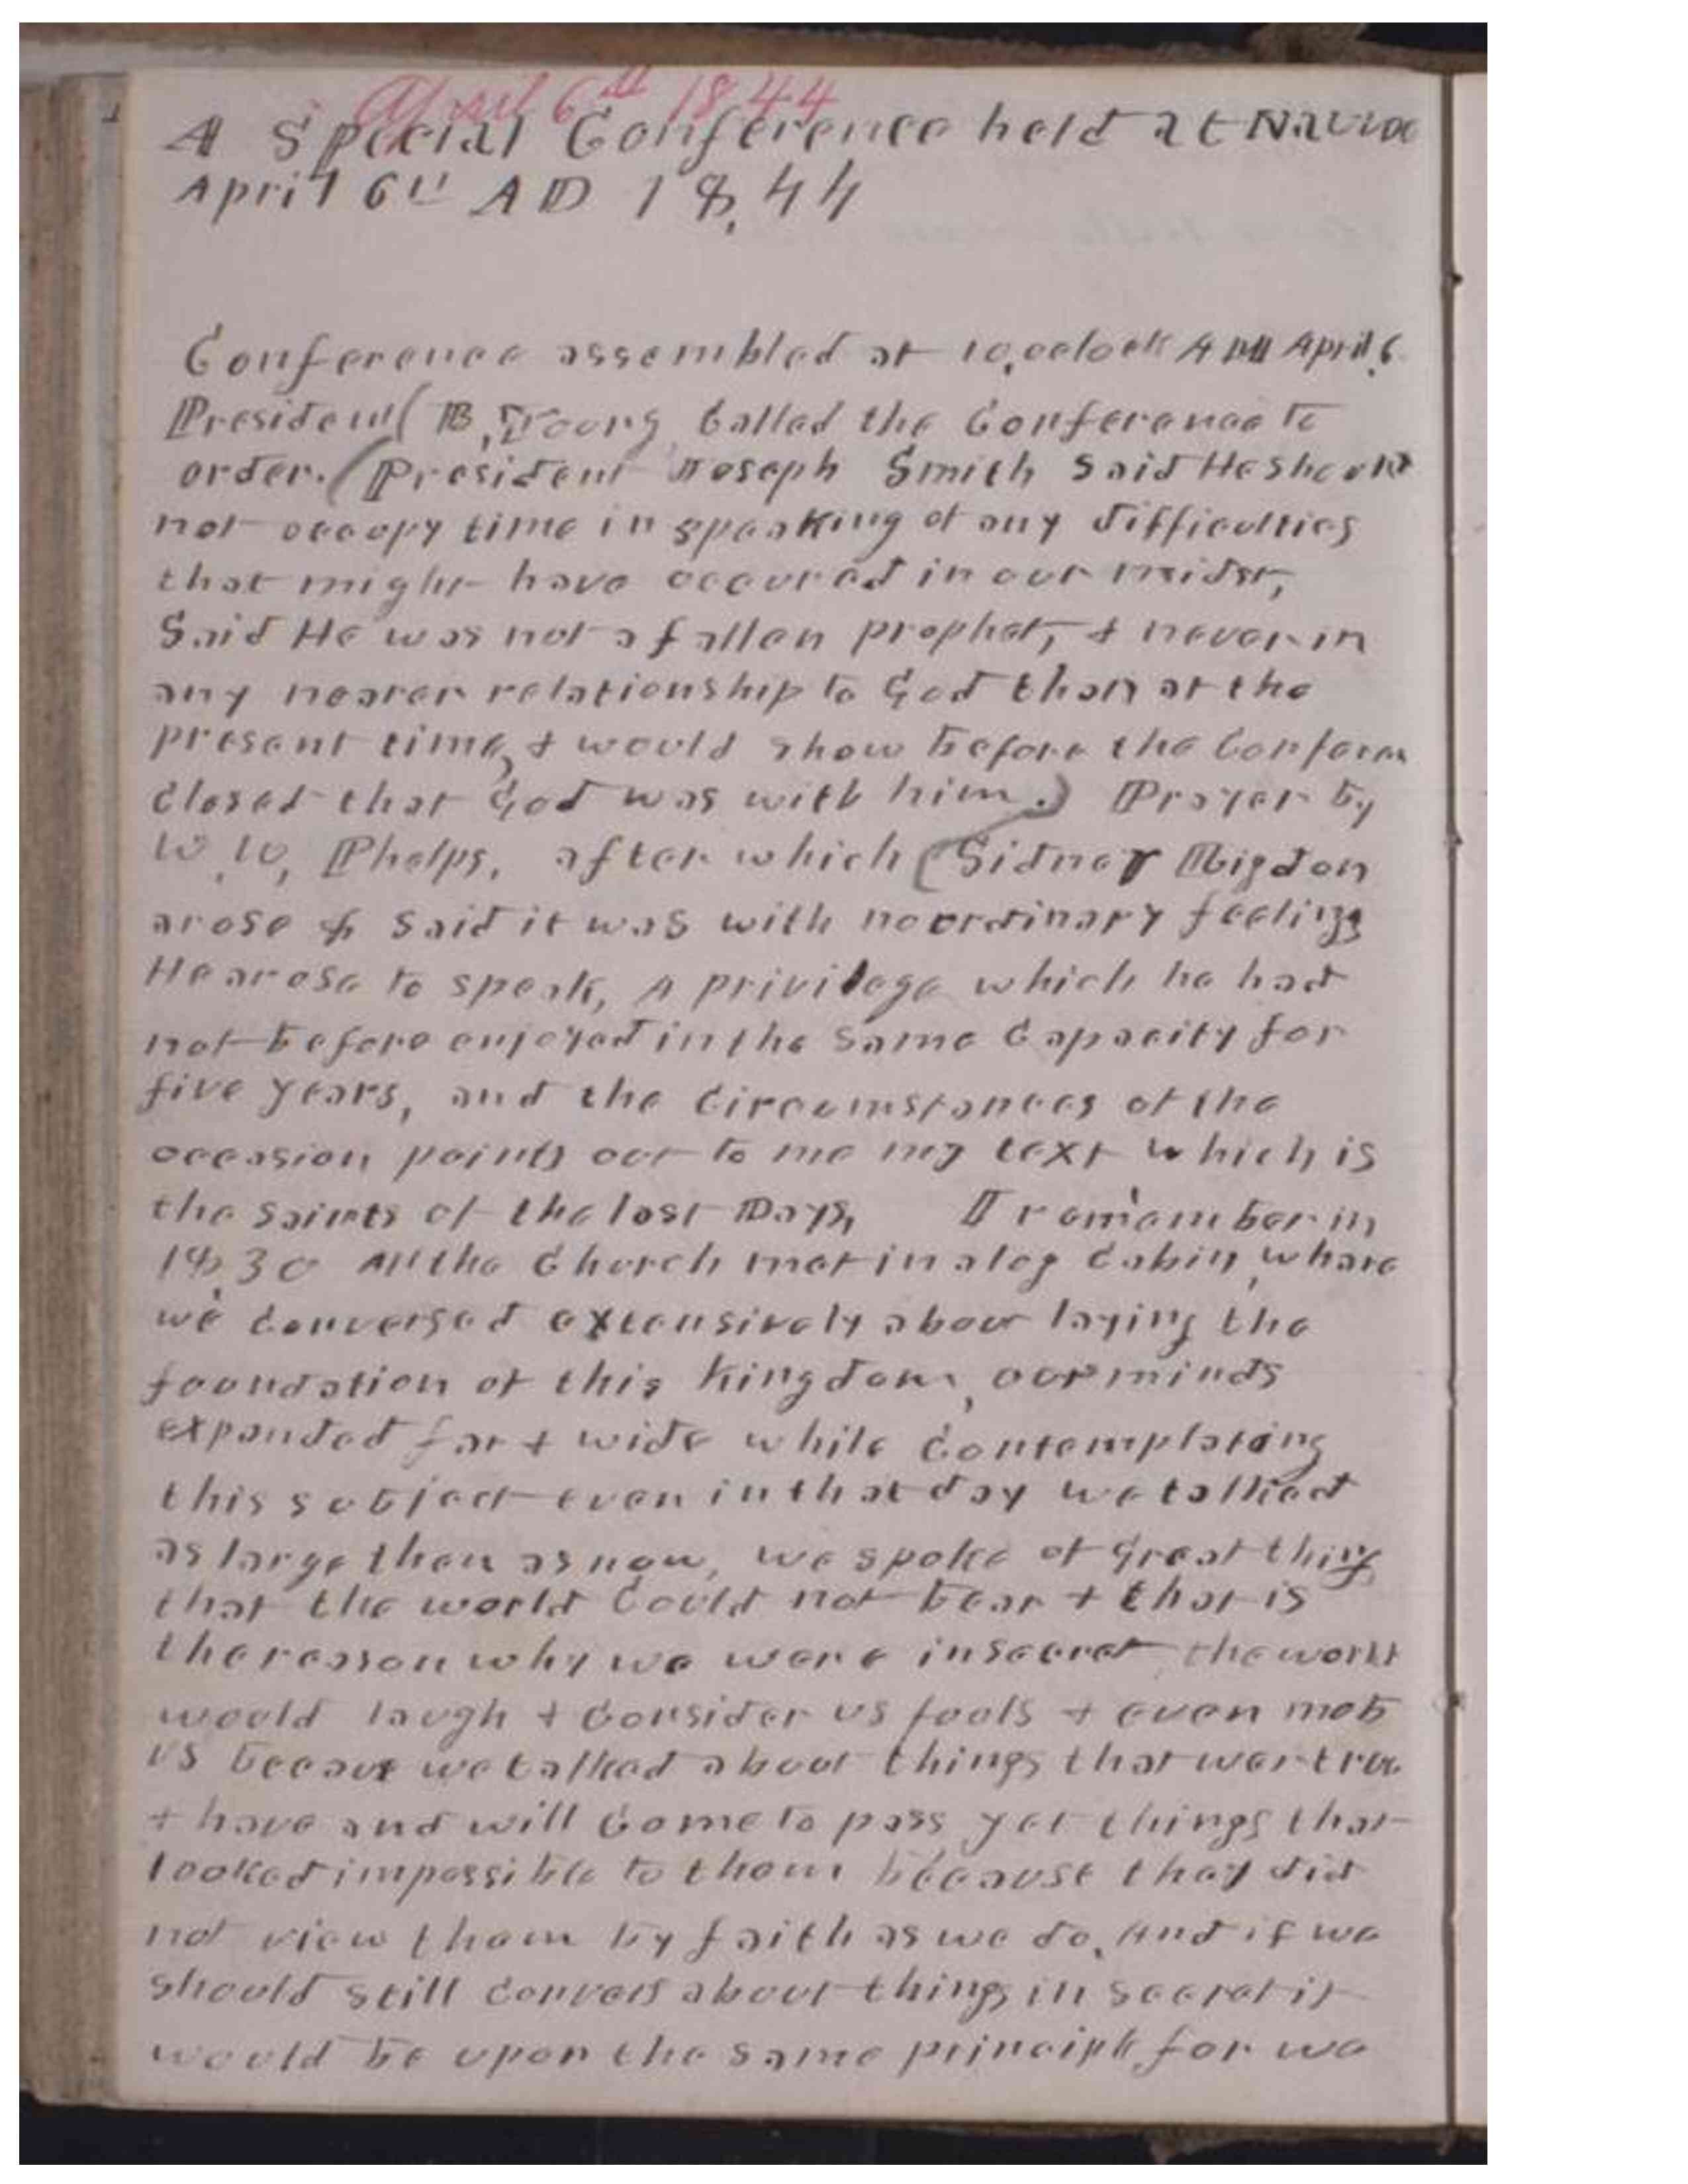 April 6th 1844
A Special Conference held at Nauvoo
April 6th AD 18,44
Conference assembled at 10,oclock AM April,6
President B, Young, Called the Conference to
order. President Joseph Smith Said He should
not occopy time in speaking of any difficulties
that might have occured in our midst,
Said He was not a fallen prophet, & never in
any nearer relationship to God than at the
present time, & would show before the Conferen
closed that God was with him.) Prayer by
W, W, Phelps, after which (Sidney Rigdon
arose & said it was with no ordinary feelings
He arose to speak, A privilege which he had
not before enjoyed in the same Capacity for
five years, and the Circumstances of the
occasion points out to me my text which is
the saints of the last Days, I remember in
18,30 All the Church met in a log Cabin, whare
we Conversed extensively about laying the
foundation of this Kingdom, our minds
expanded far & wide while Contemplating
this subject even in that day we talked
as large then as now, we spoke of great things
that the world Could not bear & that is
the reason why we were in secret the world
would laugh & Consider us fools & even mob
us because we talked about things that wer true
& have and will Come to pass yet things that
looked impossible to them because they did
not view them by faith as we do, And if we
should still Convers about things in secret it
would be upon the same principle for we